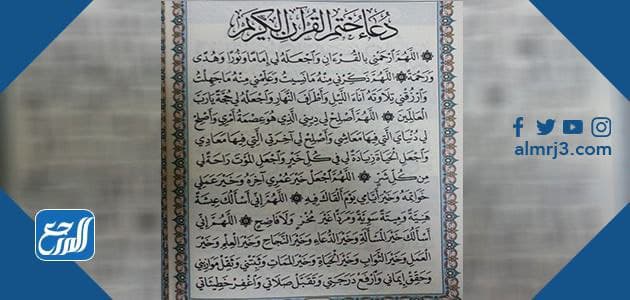 دُعَاءُ خَتْمِ الْقُرْآنِ الْكَرِيمِ
۞ اللَّهُمَّ ارْحَمْنِي بِالْقُرْءَانِ وَاجْعَلْهُ لِي إِمَامًا وَنُورًا وَهُدًى
وَرَحْمَةً ۞ اللَّهُمَّ ذَكِّرْنِي مِنْهُ مَانَسِيتُ وَعَلِّمْنِي مِنْهُ مَاجَهِلْتُ
وَارْزُقْنِي تِلَاوَتَهُ آنَاءَ اللَّيْلِ وَأَطْرَافَ النَّهَارِ وَاجْعَلْهُ لِي حُجَّةً يَارَبَّ
الْعَالَمِينَ ۞ اللَّهُمَّ أَصْلِحْ لِي دِينِي الَّذِي هُوَ عِصْمَةُ أَمْرِي وَأَصْلِحْ
لِي دُنْيَايَ الَّتِي فِيهَا مَعَاشِي وَأَصْلِحْ لِي آخِرَتِي الَّتِي فِيهَا مَعَادِي
وَاجْعَلِ الْحَيَاةَ زِيَادَةً لِي فِي كُلِّ خَيْرٍ وَاجْعَلِ الْمَوْتَ رَاحَةً لِي
مِنْ كُلِّ شَرٍّ ۞ اللَّهُمَّ اجْعَلْ خَيْرَ عُمْرِي آخِرَهُ وَخَيْرَ عَمَلِي
خَوَاتِمَهُ وَخَيْرَ أَيَّامِي يَوْمَ أَلْقَاكَ فِيهِ ۞ اللَّهُمَّ إِنِّي أَسْأَلُكَ عِيشَةً
هَنِيَّةً وَمِيتَةً سَوِيَّةً وَمَرَدًّا غَيْرَ مُخْزٍ وَلَا فَاضِحٍ ۞ اللَّهُمَّ إِنِّي
أَسْأَلُكَ خَيْرَ الْمَسْأَلَةِ وَخَيْرَ الدُّعَاءِ وَخَيْرَ النَّجَاحِ وَخَيْرَ الْعِلْمِ وَخَيْرَ
الْعَمَلِ وَخَيْرَ الثَّوَابِ وَخَيْرَ الْحَيَاةِ وَخَيْرَ الْمَمَاتِ وَثَبِّتْنِي وَثَقِّلْ مَوَازِينِي
وَحَقِّقْ إِيمَانِي وَارْفَعْ دَرَجَتِي وَتَقَبَّلْ صَلَاتِي وَاغْفِرْ خَطِيئَاتِي
almrj3.com
المرجع